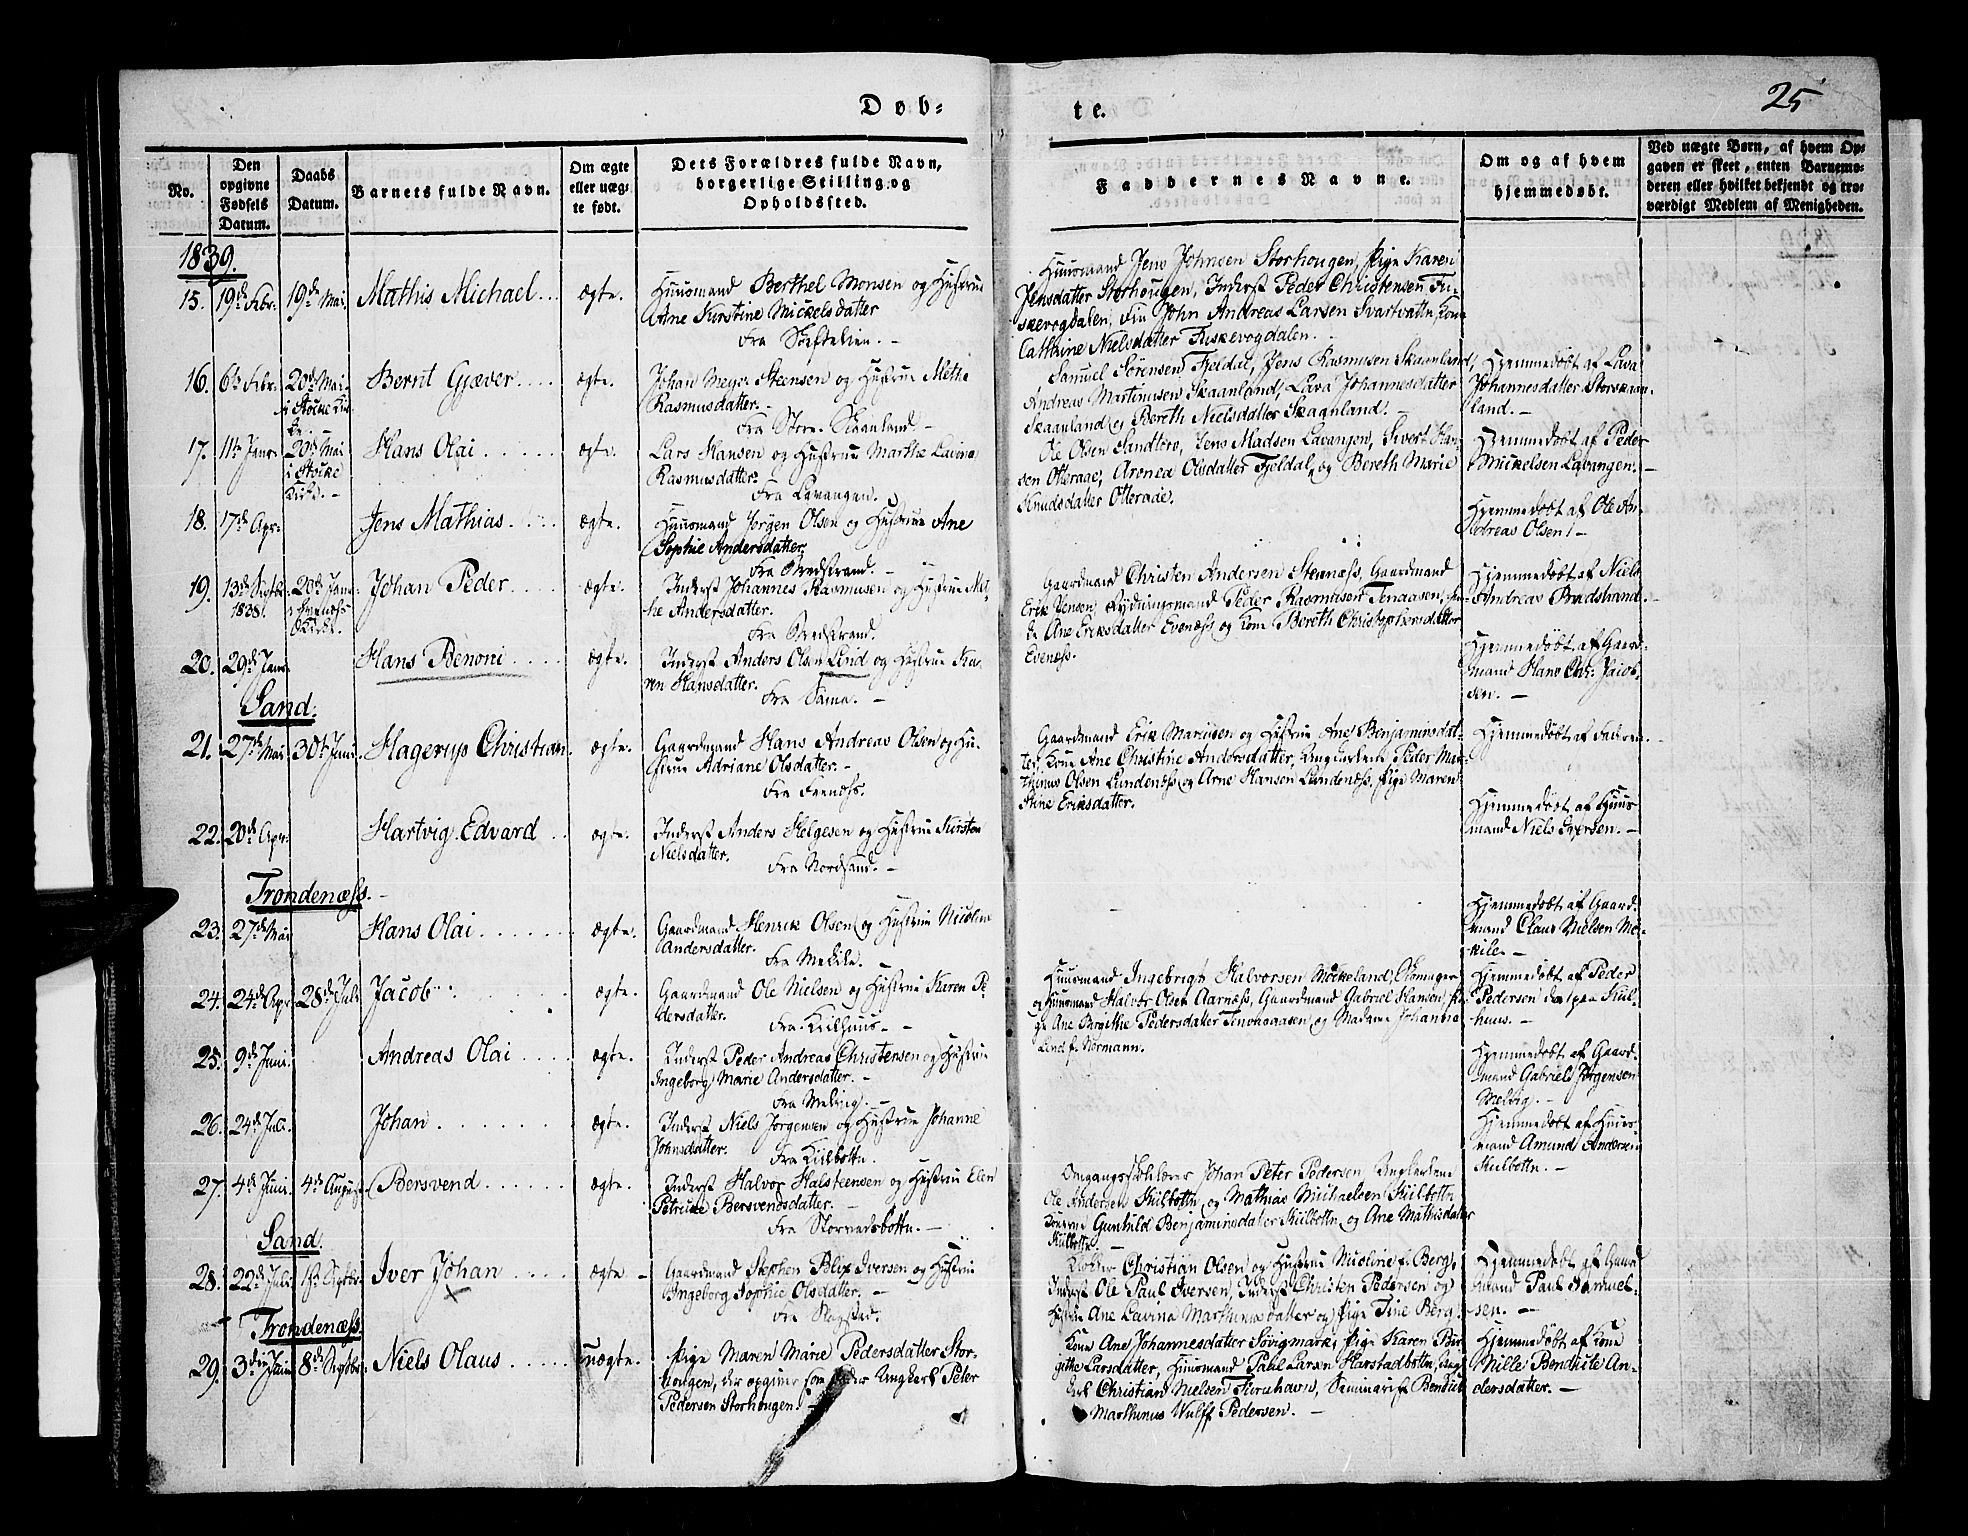 Døb-
te.
25
No.
Den
opgivne
Fødsels
Datum.
Daabs
Datum.
Barnets fulde Navn.
Om ægte
eller uæg-
te født.
Dets Forældres fulde Navn,
borgerlige Stilling og
Opholdssted.
Faddernes Navne.
Om og af hvem
hjemmedøbt.
Ved uægte Børn, af hvem Op-
gaven er skeet, enten Barnemo-
deren eller hvilket bekjendt og tro-
værdigt Medlem af Menigheden.
1839.
15. 19de Febr. 19de Mai Mathis Michael ægte. Huusmand Berthel Monsen og Hustrue
Ane Kirstine Mickelsdatter
Huusmand Jens Johnsen Storhougen, Pige Karen
Jensdatter Storhougen, Inderst Peder Christensen Fi-
skevogdalen, Fin John Andreas Larsen Svartvattn, Kone
Cathrine Nielsdatter Fiskevogdalen.
16. 6te Febr. 20de Mai Bernt Gjæver ægte. Johan Meyer Steensen og Hustrue Methe
Rasmusdatter.
Fra Store Skaanland
Samuel Sörensen Fjeldal, Jens Rasmusen Skaanland,
Andreas Martinusen Skaanland, Lava Johannesdatter
Skaanland og Bereth Nielsdatter Skaanland.
Hjemmedöbt af Lava
Johannesdatter Storskaan-
land.
17. 11te Janr. 20de Mai Hans Olai ægte. Lars Hansen og Hustrue Marthe Lavina
Rasmusdatter.
Fra Lavangen.
Ole Olsen Sandtorv, Jens Madsen Lavangen, Sivert Han-
sen Otteraae, Aronea Olsdatter Fjeldal og Bereth Marie
Knudsdatter Otteraae.
Hjemmedöbt af Peder
Mickelsen Lavangen.
18. 17de Apr. Jens Mathias ægte. Huusmand Jörgen Olsen og Hustrue Ane
Sophie Andersdatter
Fra Bredstrand.
Hjemmedöbt af Ole An-
dreas Olsen
19. 13de Septbr. 1838. 20de Johan Peder ægte. Inderst Johannes Rasmusen og Hustrue Met-
he Andersdatter.
Fra Bredstrand.
Gaardmand Christen Andersen Steenæss, Gaardmand
Erik Jensen, Rydningsmand Peder Rasmusen
Ane Eriksdatter Evenæss og Kone Bereth Christophersdatter
Evenæss.
Hjemmedöbt af Niels
Andreas Bredstrand.
20. 29de Janr. Hans Benoni ægte. Inderst Anders Olsen Lind og Hustrue Ka-
ren Hansdatter.
Fra Sama.
Hjemmedöbt af Gaard-
mand Hans Chr. Jacob-
sen.
Sand.
21. 27de Mai 30te Juni Hagerup Christian ægte. Gaardmand Hans Andreas Olsen og Hu-
strue Adriane Olsdatter.
Gaardmand Erik Mariusen og Hustrue Ane Benjaminsdat-
ter, Kone Ane Christine Andersdatter, Ungkarlene Peder Mar-
thinus Olsen Lundenæss og Arne Hansen Lundenæss, Pige Maren
Stine Eriksdatter.
Hjemmedöbt af Faderen.
22. 20de Apr. Hartvig Edvard ægte. Inderst Anders Helgesen og Hustrue Kirsten
Nielsdatter.
Fra Nordsand.
Hjemmedöbt af Huus-
mand Niels Eversen.
Trondenæss.
23. 27de Mai Hans Olai ægte. Gaardmand Henrik Olsen og Hustrue Nicoline
Andersdatter.
Hjemmedöbt af Gaard-
mand Claus Nielsen
24. 24de Apr. 28de Juli Jacob ægte. Gaardmand Ole Nielsen og Hustrue Karen Pe-
dersdatter.
Fra Kiilhuus.
Huusmand Ingebrigt Halvorsen Möckeland,
og Huusmand Halvor Olsen Aarnæss, Gaardmand Gabriel Hansen, Pi-
ge Ane Birgithe Pedersdatter og Madame Johanna
Lind f. Normann.
Hjemmedöbt af Peder
Pedersen
Kiil-
huus.
25. 9de Juni Andreas Olai ægte. Inderst Peder Andreas Christensen og Hustrue
Ingeborg Marie Andersdatter.
Fra Meling.
Hjemmedöbt af Gaard-
mand Gabriel Jörgensen
26. 24de Juli Johan ægte. Inderst Niels Jörgensen og Hustrue Johanne
Johnsdatter.
Fra Kiilbottn.
Hjemmedöbt af Huus-
mand Amund Andersen
Kiilbottn.
27. 4de Juni 4de August Bersvend ægte. Inderst Halvor Halsteensen og Hustrue Elen
Petrikke Bersvendsdatter.
Omgangsskolelærer Johan Peter Pedersen, Ungkarlene
Ole Andersen Kiilbottn og Mathias Michaelsen Kiilbottn
Konerne Gunhild Benjaminsdatter Kiilbottn og Ane Mathisdatter
Kiilbottn.
Sand.
28. 22de Juli 1ste Septbr. Iver Johan ægte Gaardmand Stephen Blix Iversen og Hustrue
Ingeborg Sophie Olsdatter.
Klokker Christian Olsen og Hustrue Nicoline f. Berg,
Inderst Ole Paul Iversen, Inderst Christen Pedersen og
Hustrue Ane Lavina Marthinusdatter og Pige Tine Berg.
Hjemmedöbt af Gaard
mand Paul Samuel-
sen.
Trondenæss
29. 3die Juni 8de Septbr. Niels Olaus uægte. Pige Maren Marie Pedersdatter Stor-
hougen, der opgiver som Fader Ungkarl Peter
Pedersen Storhougen.
Kone Ane Johannesdatter Sörvigmark, Pige Karen Bir-
githe Larsdatter, Huusmand Paul Larsen Harstadbottn, Ung-
karl Christian Nielsen, Seminarist Bendict
Marthinus Wulff Pedersen.
Hjemmedöbt af Kone
Mille Bendicte An-
dersdatter.